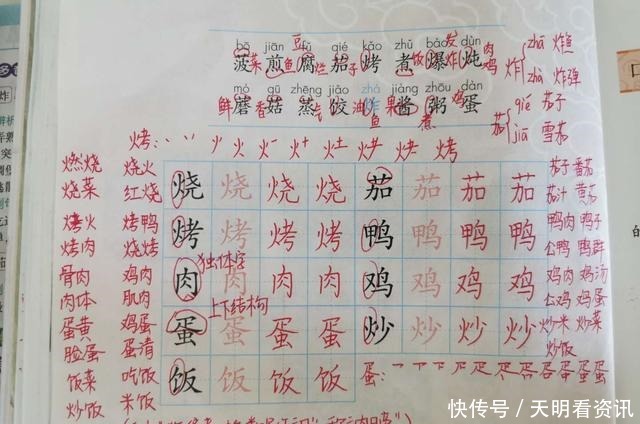 bō jiān fǔ qié kǎo zhǔ bào dùn
菠菜 煎鱼 豆腐 烂 茄子 烤 煮饭 爆炸 炖鸡肉
炸 zhá 炸鱼
zhà 炸弹
mó gū zhēng jiǎo zhá jiàng zhōu dàn
鲜蘑 香菇 蒸气 饺 油炸鱼 果酱 煮粥 鸡蛋
茄 qié 茄子
jiā 雪茄
烤:
燃烧 烧火 烧 烧 烧 烧 茄 茄 茄 茄 茄子 番茄
烧菜 红烧 茄汁
烤火 烤鸭 烤 烤 烤 烤 鸭 鸭 鸭 鸭 鸭肉 鸭子
烤肉 烧烤 独体字 公鸭 鸭群
骨肉 鸡肉 肉 肉 肉 肉 鸡 鸡 鸡 鸡 鸡肉 鸡汤
肉体 肌肉 上下结构 公鸡 鸡蛋
蛋黄 鸡蛋 蛋 蛋 蛋 蛋 炒 炒 炒 炒 炒米 炒菜
脸蛋 蛋清 炒饭
饭菜 吃饭 饭 饭 饭 饭 蛋:
炒饭 米饭
快传号/天明看资讯